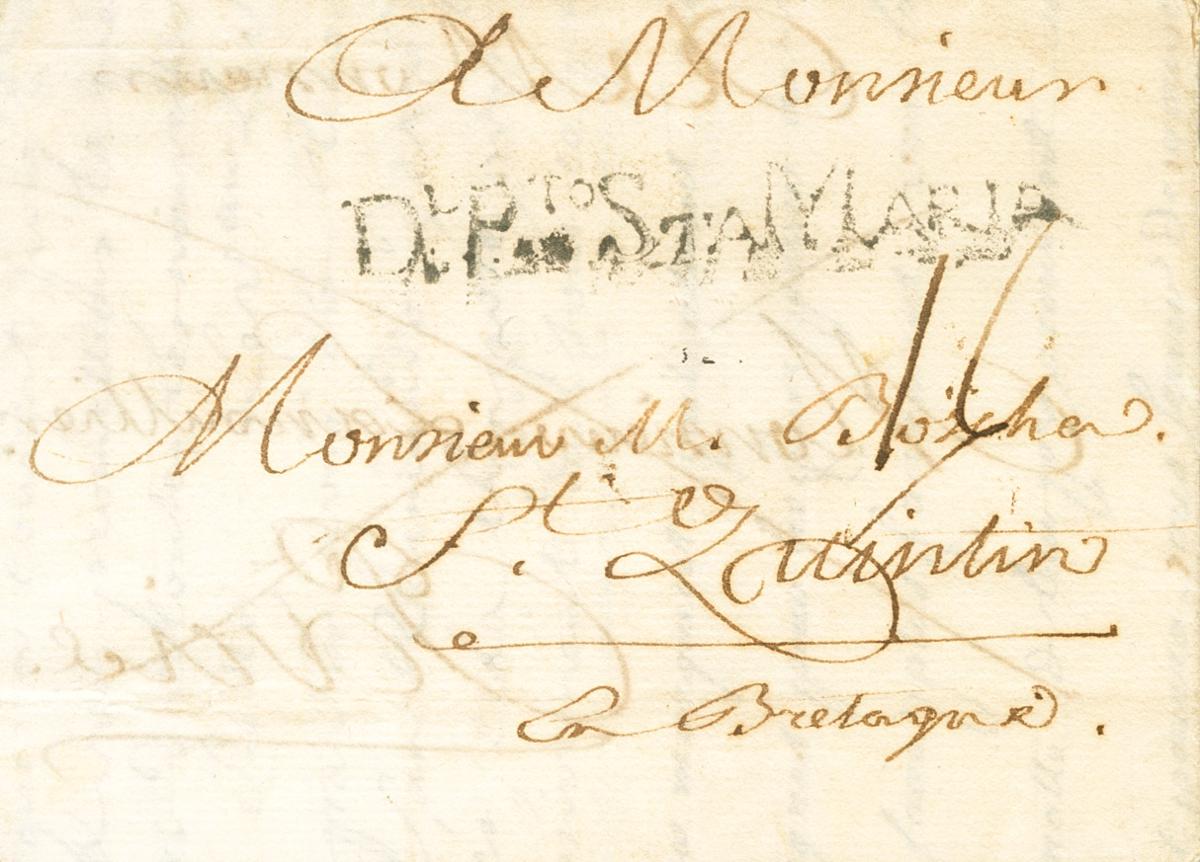 A Monsieur
DL PTO STA MARIA
Monsieur M. Boscher.
St. Quintin
en Bretagne.